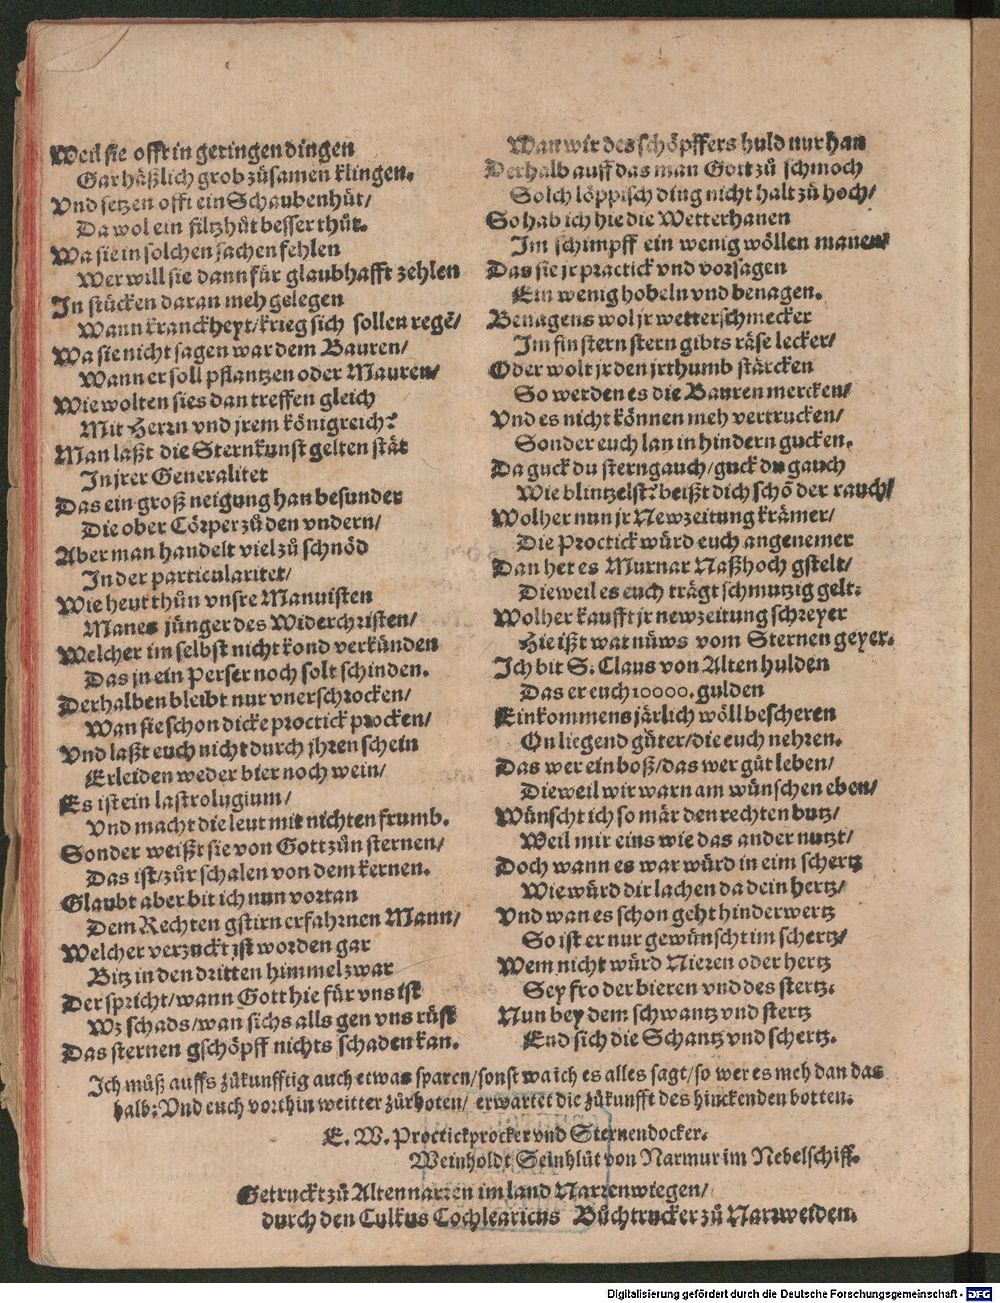 Weil sie offt in geringen dingen
Gar häßlich grob zůsamen klingen.
Vnd setzen offt ein Schaubenhůt/
Da wol ein filtzhůt besser thůt.
Wa sie in solchen sachen fehlen
Wer will sie dann für glaubhafft zehlen
In stücken daran meh gelegen
Wann kranckheyt/krieg sich sollen regē/
Wa sie nicht sagen war dem Bauren/
Wann er soll pflantzen oder Mauren/
Wie wolten sies dan treffen gleich
Mit Herrn vnd jrem königreich?
Man laßt die Sternkunst gelten stät
In jrer Generalitet
Das ein groß neigung han besunder
Die ober Cörper zů den vndern/
Aber man handelt viel zů schnöd
In der particularitet/
Wie heut thůn vnsre Manuisten
Manes jünger des Widerchristen/
Welcher im selbst nicht kond verkünden
Das jn ein Perser noch solt schinden.
Derhalben bleibt nur vnerschrocken/
Wan sie schon dicke proctick procken/
Vnd laßt euch nicht durch jhren schein
Erleiden weder bier noch wein/
Es ist ein lastrolugium/
Vnd macht die leut mit nichten frumb.
Sonder weißt sie von Gott zůn sternen/
Das ist/zůr schalen von dem kernen.
Glaubt aber bit ich nun vortan
Dem Rechten gstirn erfahrnen Mann/
Welcher verzuckt ist worden gar
Bitz in den dritten himmel zwar
Der spricht/wann Gott hie für vns ist
Wz schads/wan sichs alls gen vns rüst
Das sternen gschöpff nichts schaden kan.
Wan wir des schöpffers huld nur han
Derhalb auff das man Gott zů schmoch
Solch löppisch ding nicht halt zů hoch/
So hab ich hie die Wetterhanen
Im schimpff ein wenig wöllen manen
Das sie jr practick vnd vorsagen
Ein wenig hobeln vnd benagen.
Benagens wol jr wetterschmecker
Im finstern stern gibts räse lecker/
Oder wolt jr den jrthumb stärcken
So werden es die Bauren mercken/
Vnd es nicht können meh vertrucken/
Sonder euch lan in hindern gucken.
Da guck du sterngauch/guck du gauch
Wie blintzelst? beißt dich schō der rauch/
Wolher nun jr Newzeitung krämer/
Die Proctick würd euch angenemer
Dan het es Murnar Naßhoch gstelt/
Dieweil es euch trägt schmutzig gelt.
Wolher kaufft jr newzeitung schreyer
Hie ißt wat nüws vom Sternen geyer.
Ich bit S. Claus von Alten hulden
Das er euch 10000. gulden
Einkommens järlich wöll bescheren
On liegend güter/die euch nehren.
Das wer ein boß/das wer gůt leben/
Dieweil wir warn am wünschen eben/
Wünscht ich so mär den rechten butz/
Weil mir eins wie das ander nutzt/
Doch wann es war würd in eim schertz
Wie würd dir lachen da dein hertz/
Vnd wan es schon geht hinderwertz
So ist er nur gewünscht im schertz/
Wem nicht würd Nieren oder hertz
Sey fro der bieren vnd des stertz.
Nun bey dem schwantz vnd stertz
End sich die Schantz vnd schertz.
Ich můß auffs zůkunfftig auch etwas sparen/sonst wa ich es alles sagt/so wer es meh dan das
halb: Vnd euch vorthin weitter zůrboten/ erwartet die zůkunfft des hinckenden botten.
E. W. Proctickprocker vnd Sternendocker.
Weinholdt Seinhlüt von Narmur im Nebelschiff.
Getruckt zů Altennarren im land Narrenwiegen/
durch den Culkus Cochlearicus Bůchtrucker zů Narrweiden.
Digitalisierung gefördert durch die Deutsche Forschungsgemeinschaft - DFG